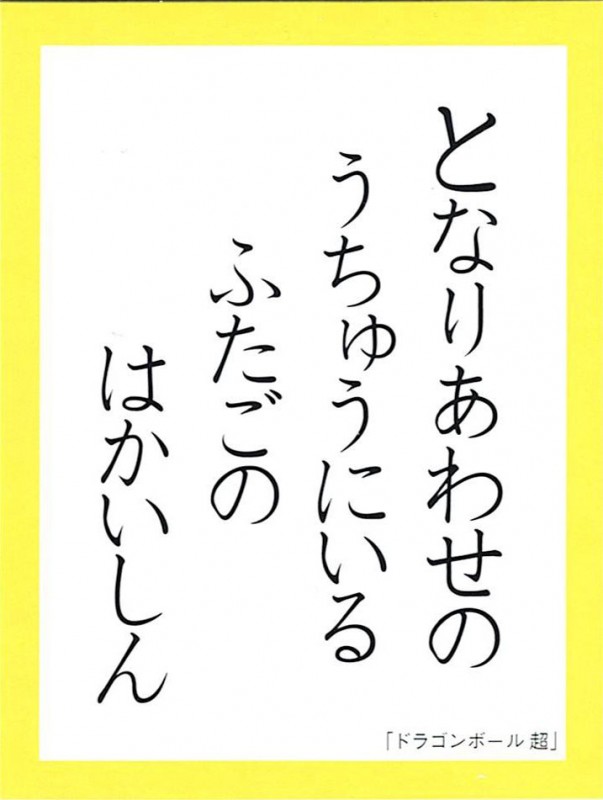 となりあわせの
うちゅうにいる
ふたごの
はかいしん
「ドラゴンボール 超」